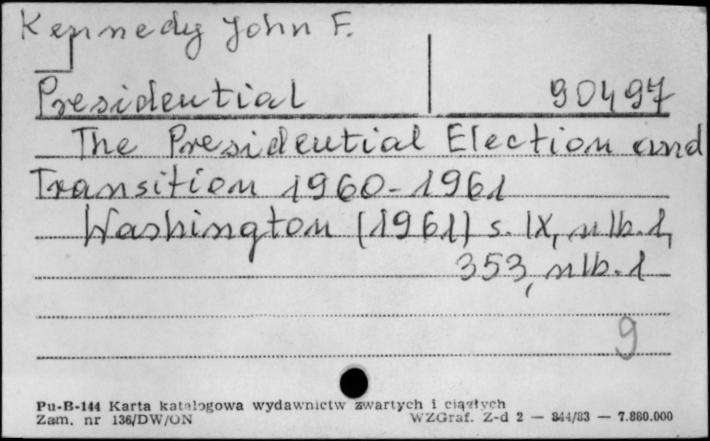 Kennedy John F.
Presidential 90497
The Presidential Election and
Transition 1960-1961
Washington (1961) s. IX, nlb. 1,
353, nlb. 1
9
Pu-B-144 Karta katalogowa wydawnictw zwartych i ciągłych
Zam. nr 136/DW/ON WZGraf. Z-d 2 — 844/83 — 7.880.000